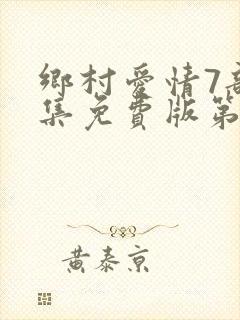 鄉村愛情7高
集免費版第
黃泰京